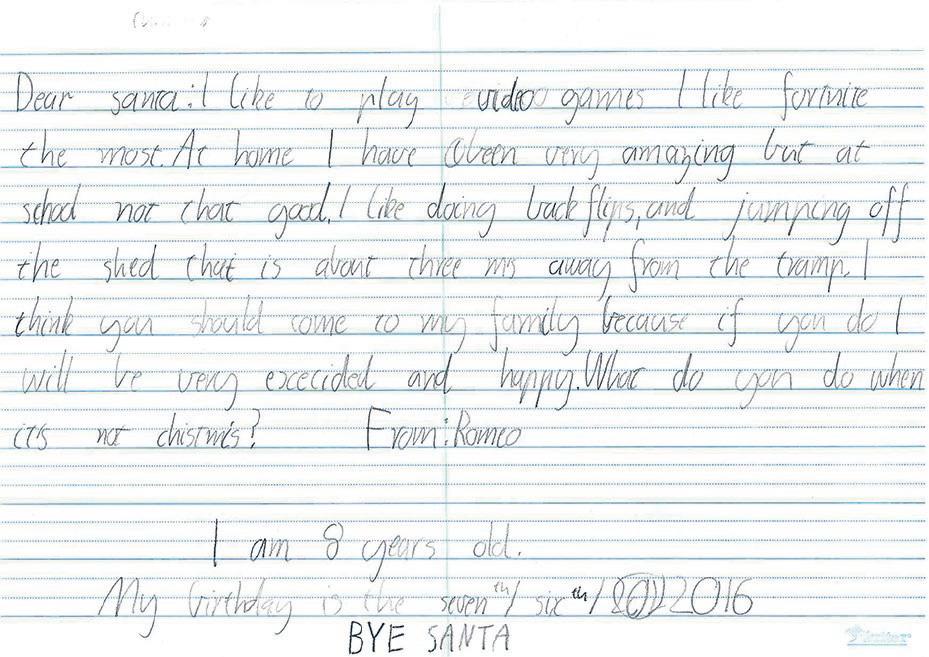 Dear santa: I like to play video games I like fortnite
the most. At home I have been very amazing but at
school not that good. I like doing back flips, and jumping off
the shed that is about three ms away from the tramp. I
think you should come to my family because if you do I
will be very excecided and happy. What do you do when
it's not chistmis? From: Romeo
I am 8 years old.
My birthday is the seventh/ sixth/ 2016
BYE SANTA